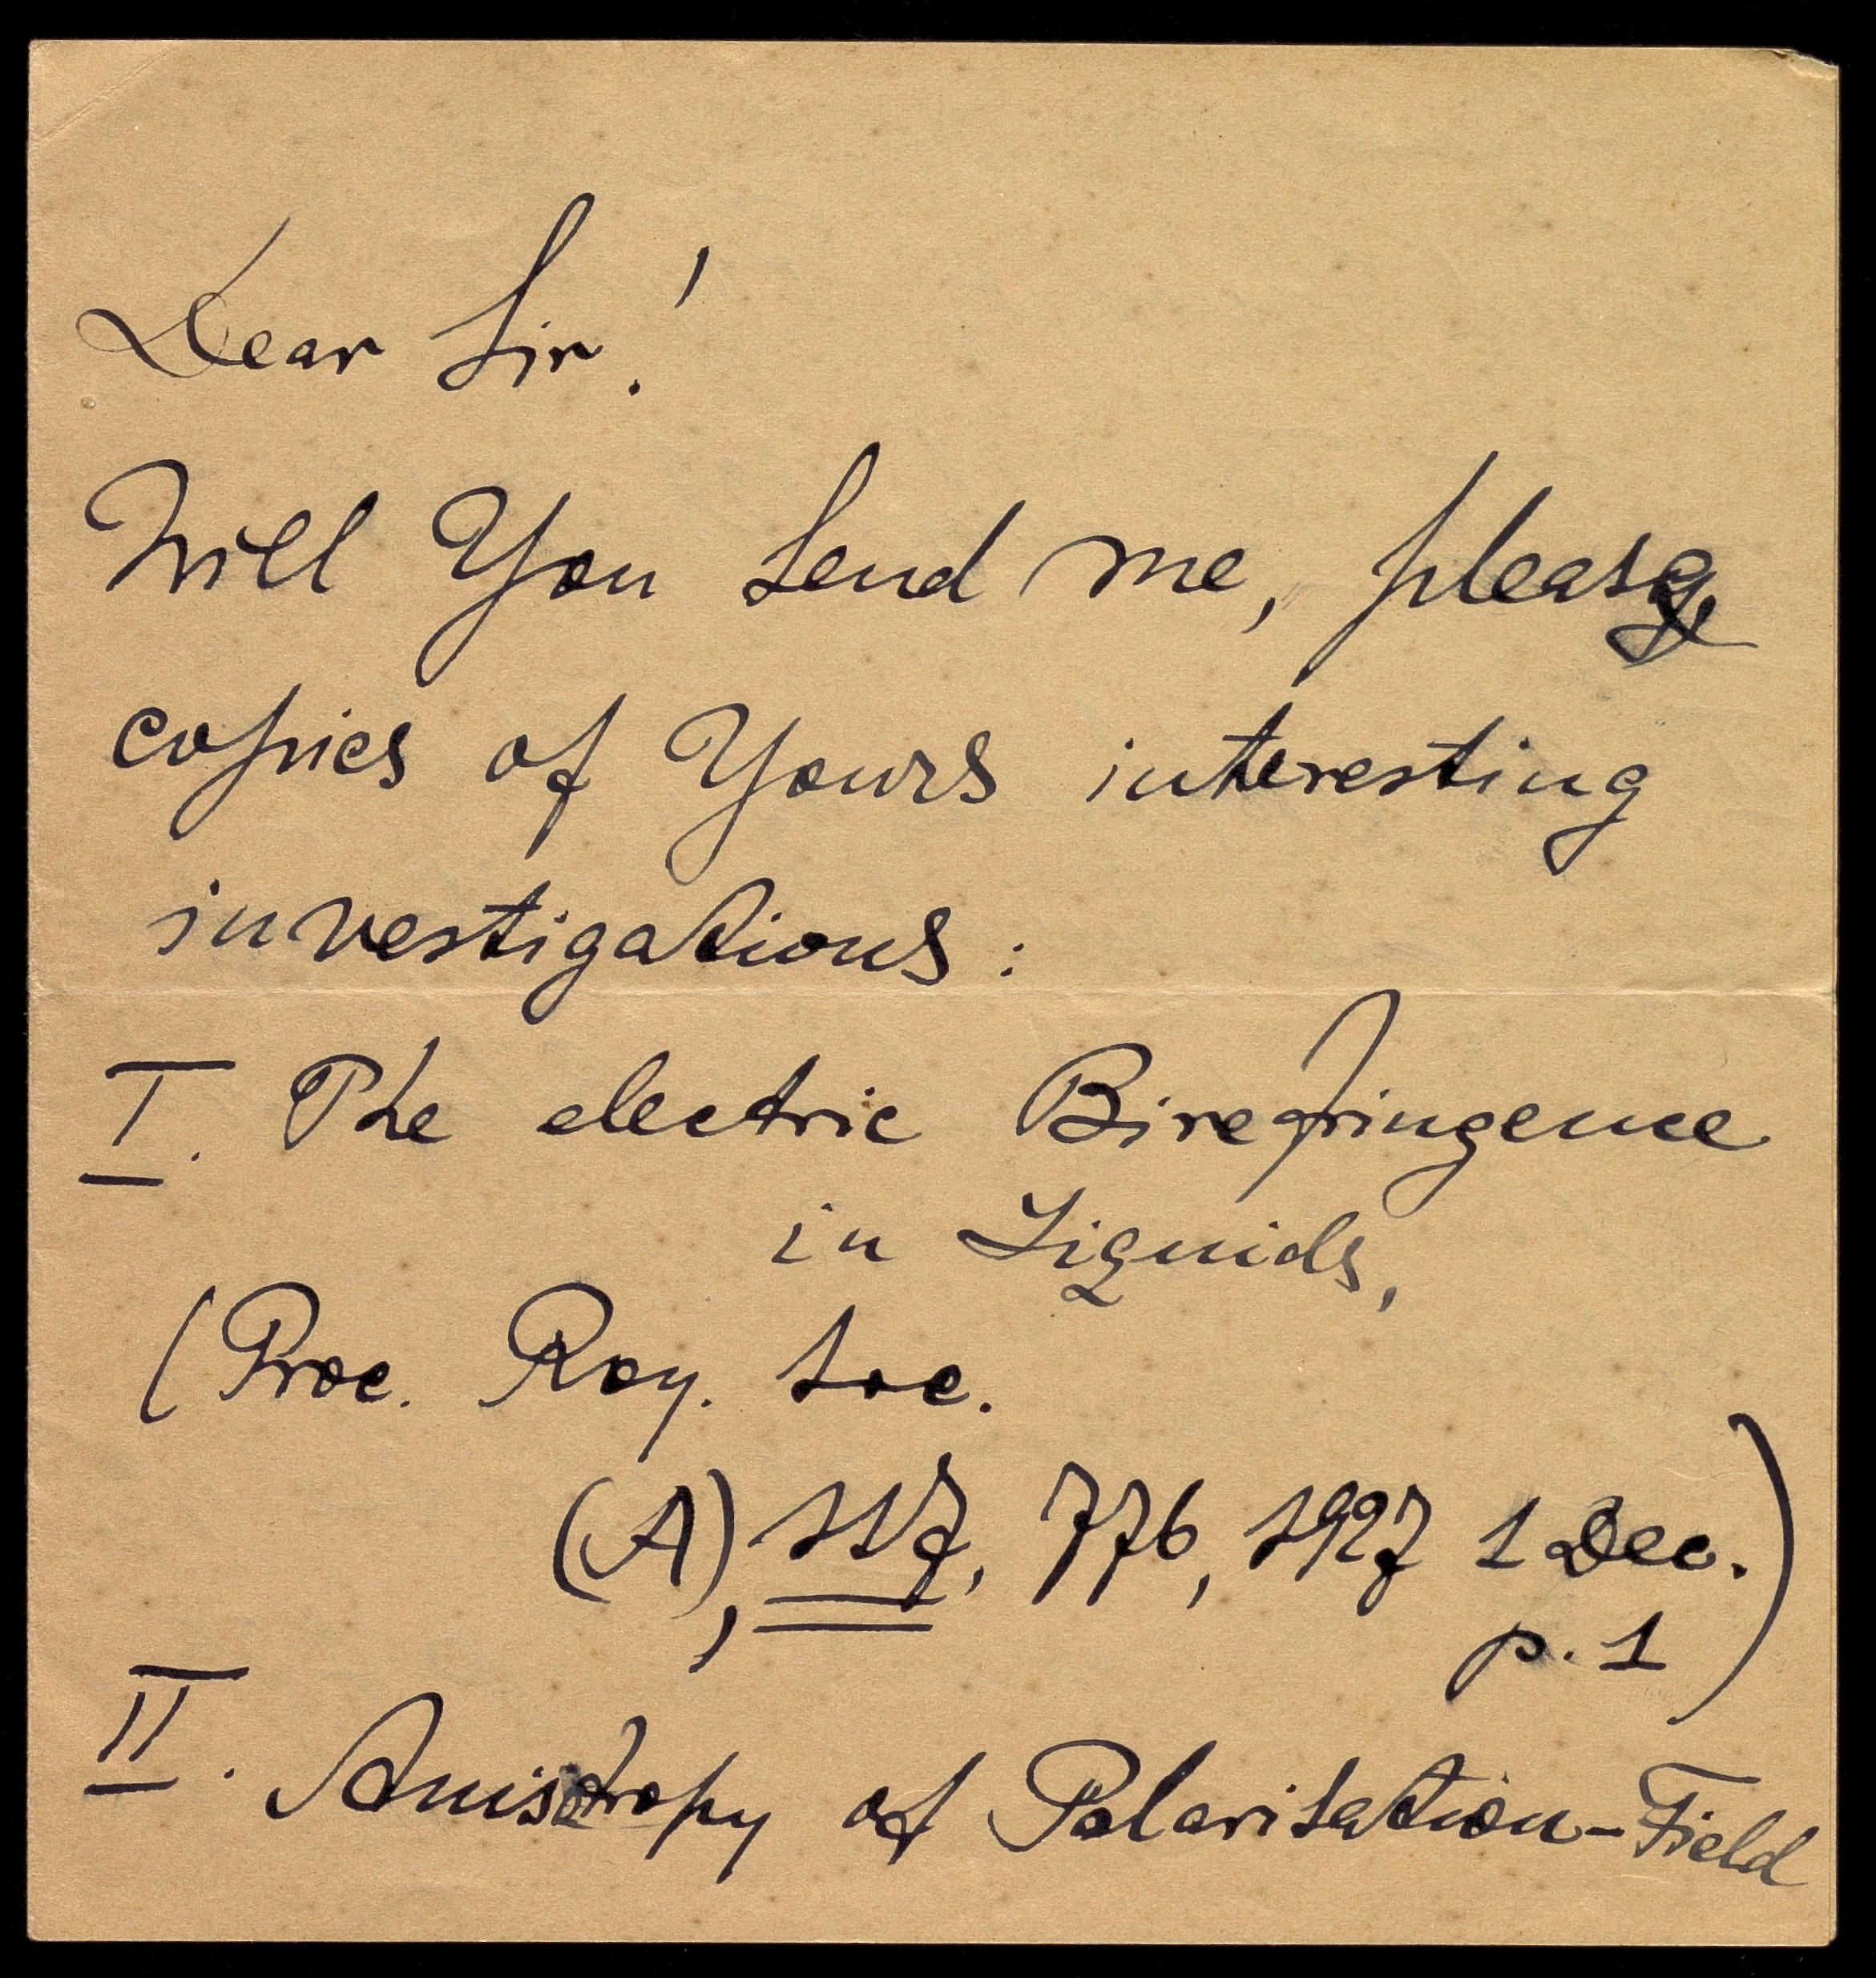 Dear Sir!
Will You send me, please,
copies of Yours interesting
investigations:
I. The electric Birefringence
in Liquids,
(Proc. Roy. Soc.
(A), 117, 776, 1927 1 Dec.
p. 1)
II. Anisotropy of Polarisation-Field